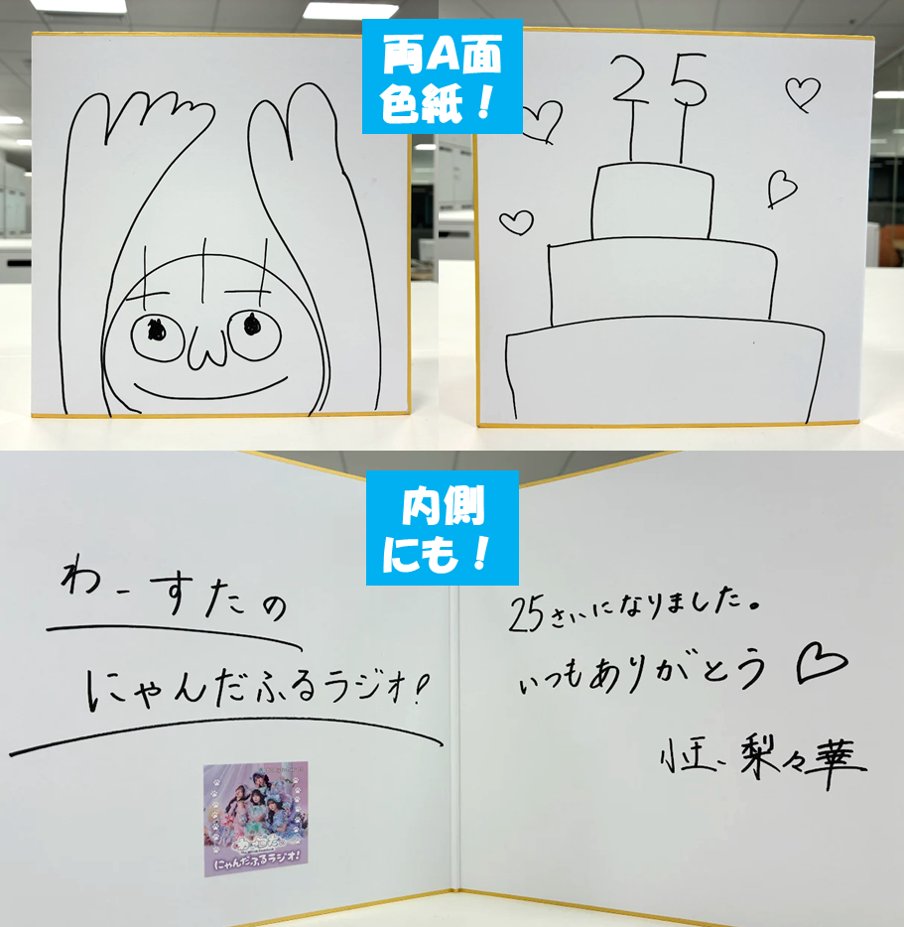 両A面
色紙！
25
内側
にも！
わーすたの
にゃんだふるラジオ！
にゃんだふるラジオ！
25さいになりました。
いつもありがとう♡
小玉梨々華